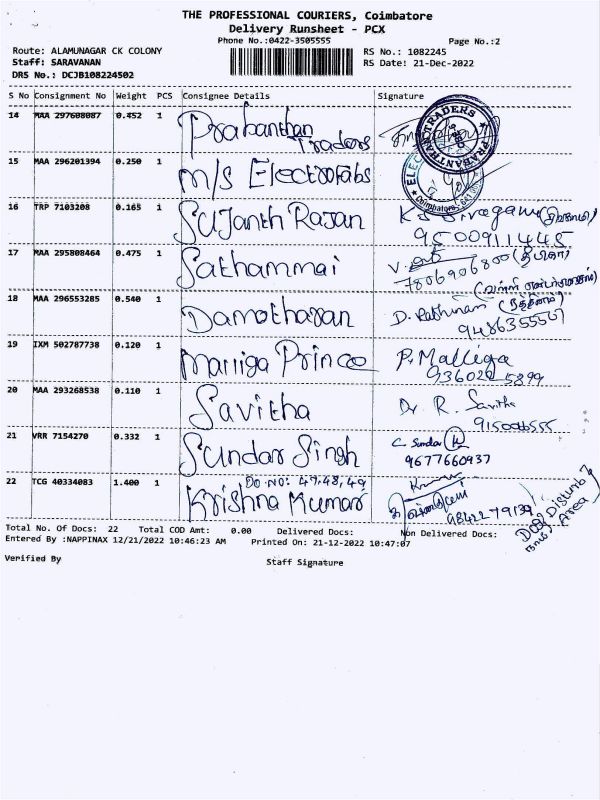 THE PROFESSIONAL COURIERS, Coimbatore
Delivery Runsheet - PCX
Phone No.:0422-3505555 Page No.:2
Route: ALAMUNAGAR CK COLONY RS No.: 1082245
Staff: SARAVANAN RS Date: 21-Dec-2022
DRS No.: DCJB108224502
S No Consignment No Weight PCS Consignee Details Signature
14 MAA 297608087 0.452 1 Prabanthan Traders
15 MAA 296201394 0.250 1 M/S Electrofabs
16 TRP 7103208 0.165 1 Sujanth Rajan
9500911445
17 MAA 295808464 0.475 1 Sathammai
7806906800
18 MAA 296553285 0.540 1 Damotharan D. Rathinam
19 IXM 502787738 0.120 1 Marriga Prince P. Malliga
20 MAA 293268538 0.110 1 Savitha Dr. R. Savitha
21 VRR 7154270 0.332 1 Sundar Singh C. Sundar
9677660937
22 TCG 40334083 1.400 1 DO NO: 47,48,49
Krishna Kumar
Dog Disturb
Area
Total No. Of Docs: 22 Total COD Amt: 0.00 Delivered Docs: Non Delivered Docs:
Entered By :NAPPINAX 12/21/2022 10:46:23 AM Printed On: 21-12-2022 10:47:07
Verified By Staff Signature